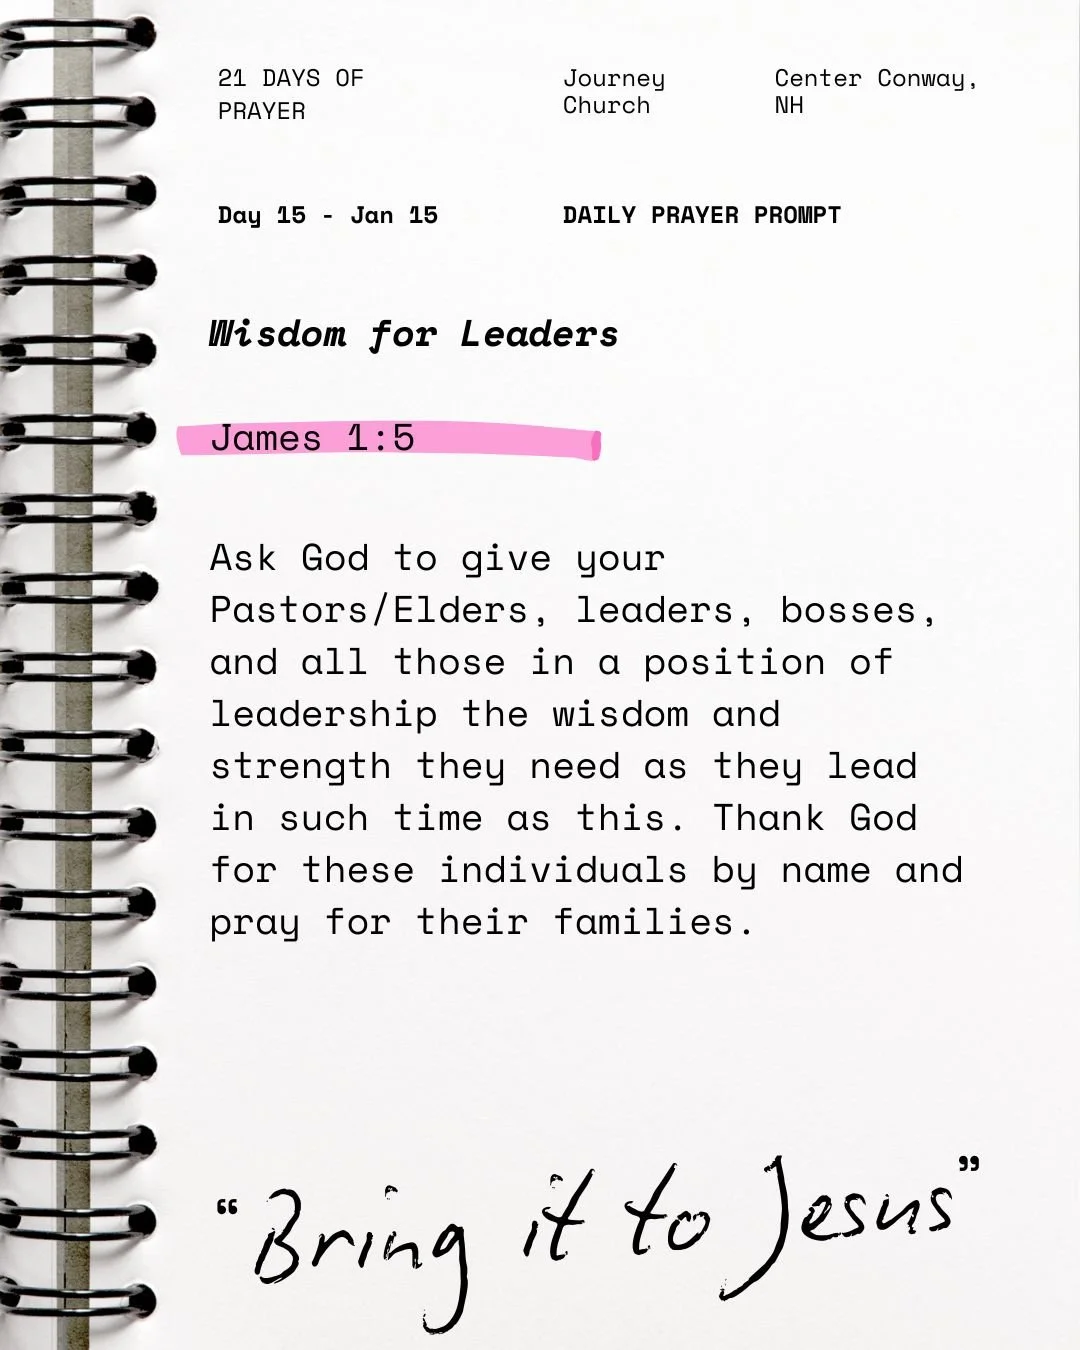 21 DAYS OF
PRAYER
Journey
Church
Center Conway,
NH
Day 15 - Jan 15
DAILY PRAYER PROMPT
Wisdom for Leaders
James 1:5
Ask God to give your
Pastors/Elders, leaders, bosses,
and all those in a position of
leadership the wisdom and
strength they need as they lead
in such time as this. Thank God
for these individuals by name and
pray for their families.
“Bring it to Jesus”